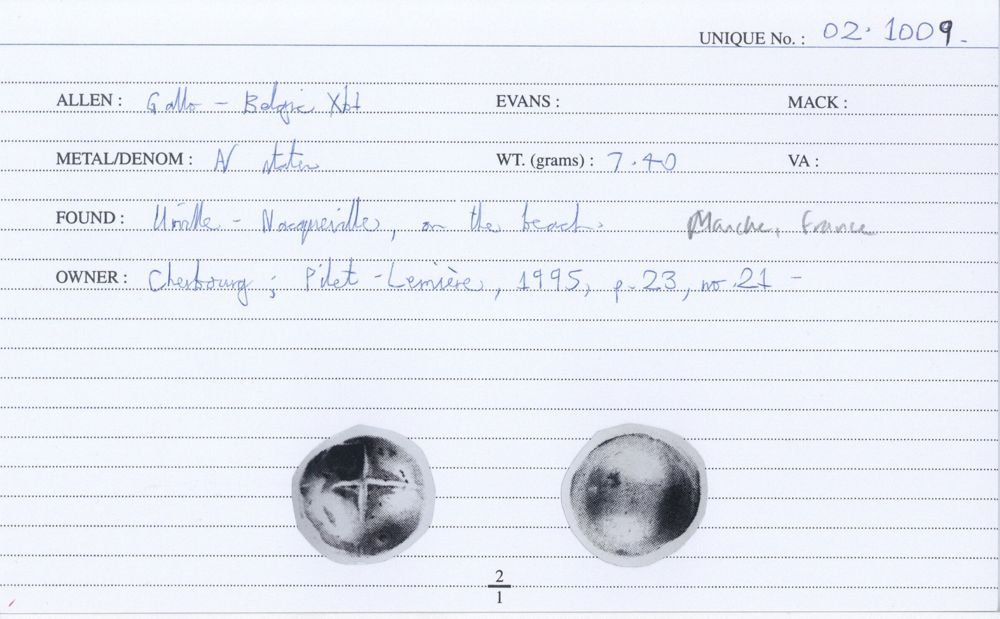 UNIQUE No. : 02.1009.
ALLEN : Gallo - Belgic Xb1 EVANS : MACK :
METAL/DENOM : N stater WT. (grams) : 7.40 VA :
FOUND : Urville - Nacqueville, on the beach. Manche, France
OWNER : Cherbourg ; Pilet - Lemière, 1995, p.23, no.21 -
2
1